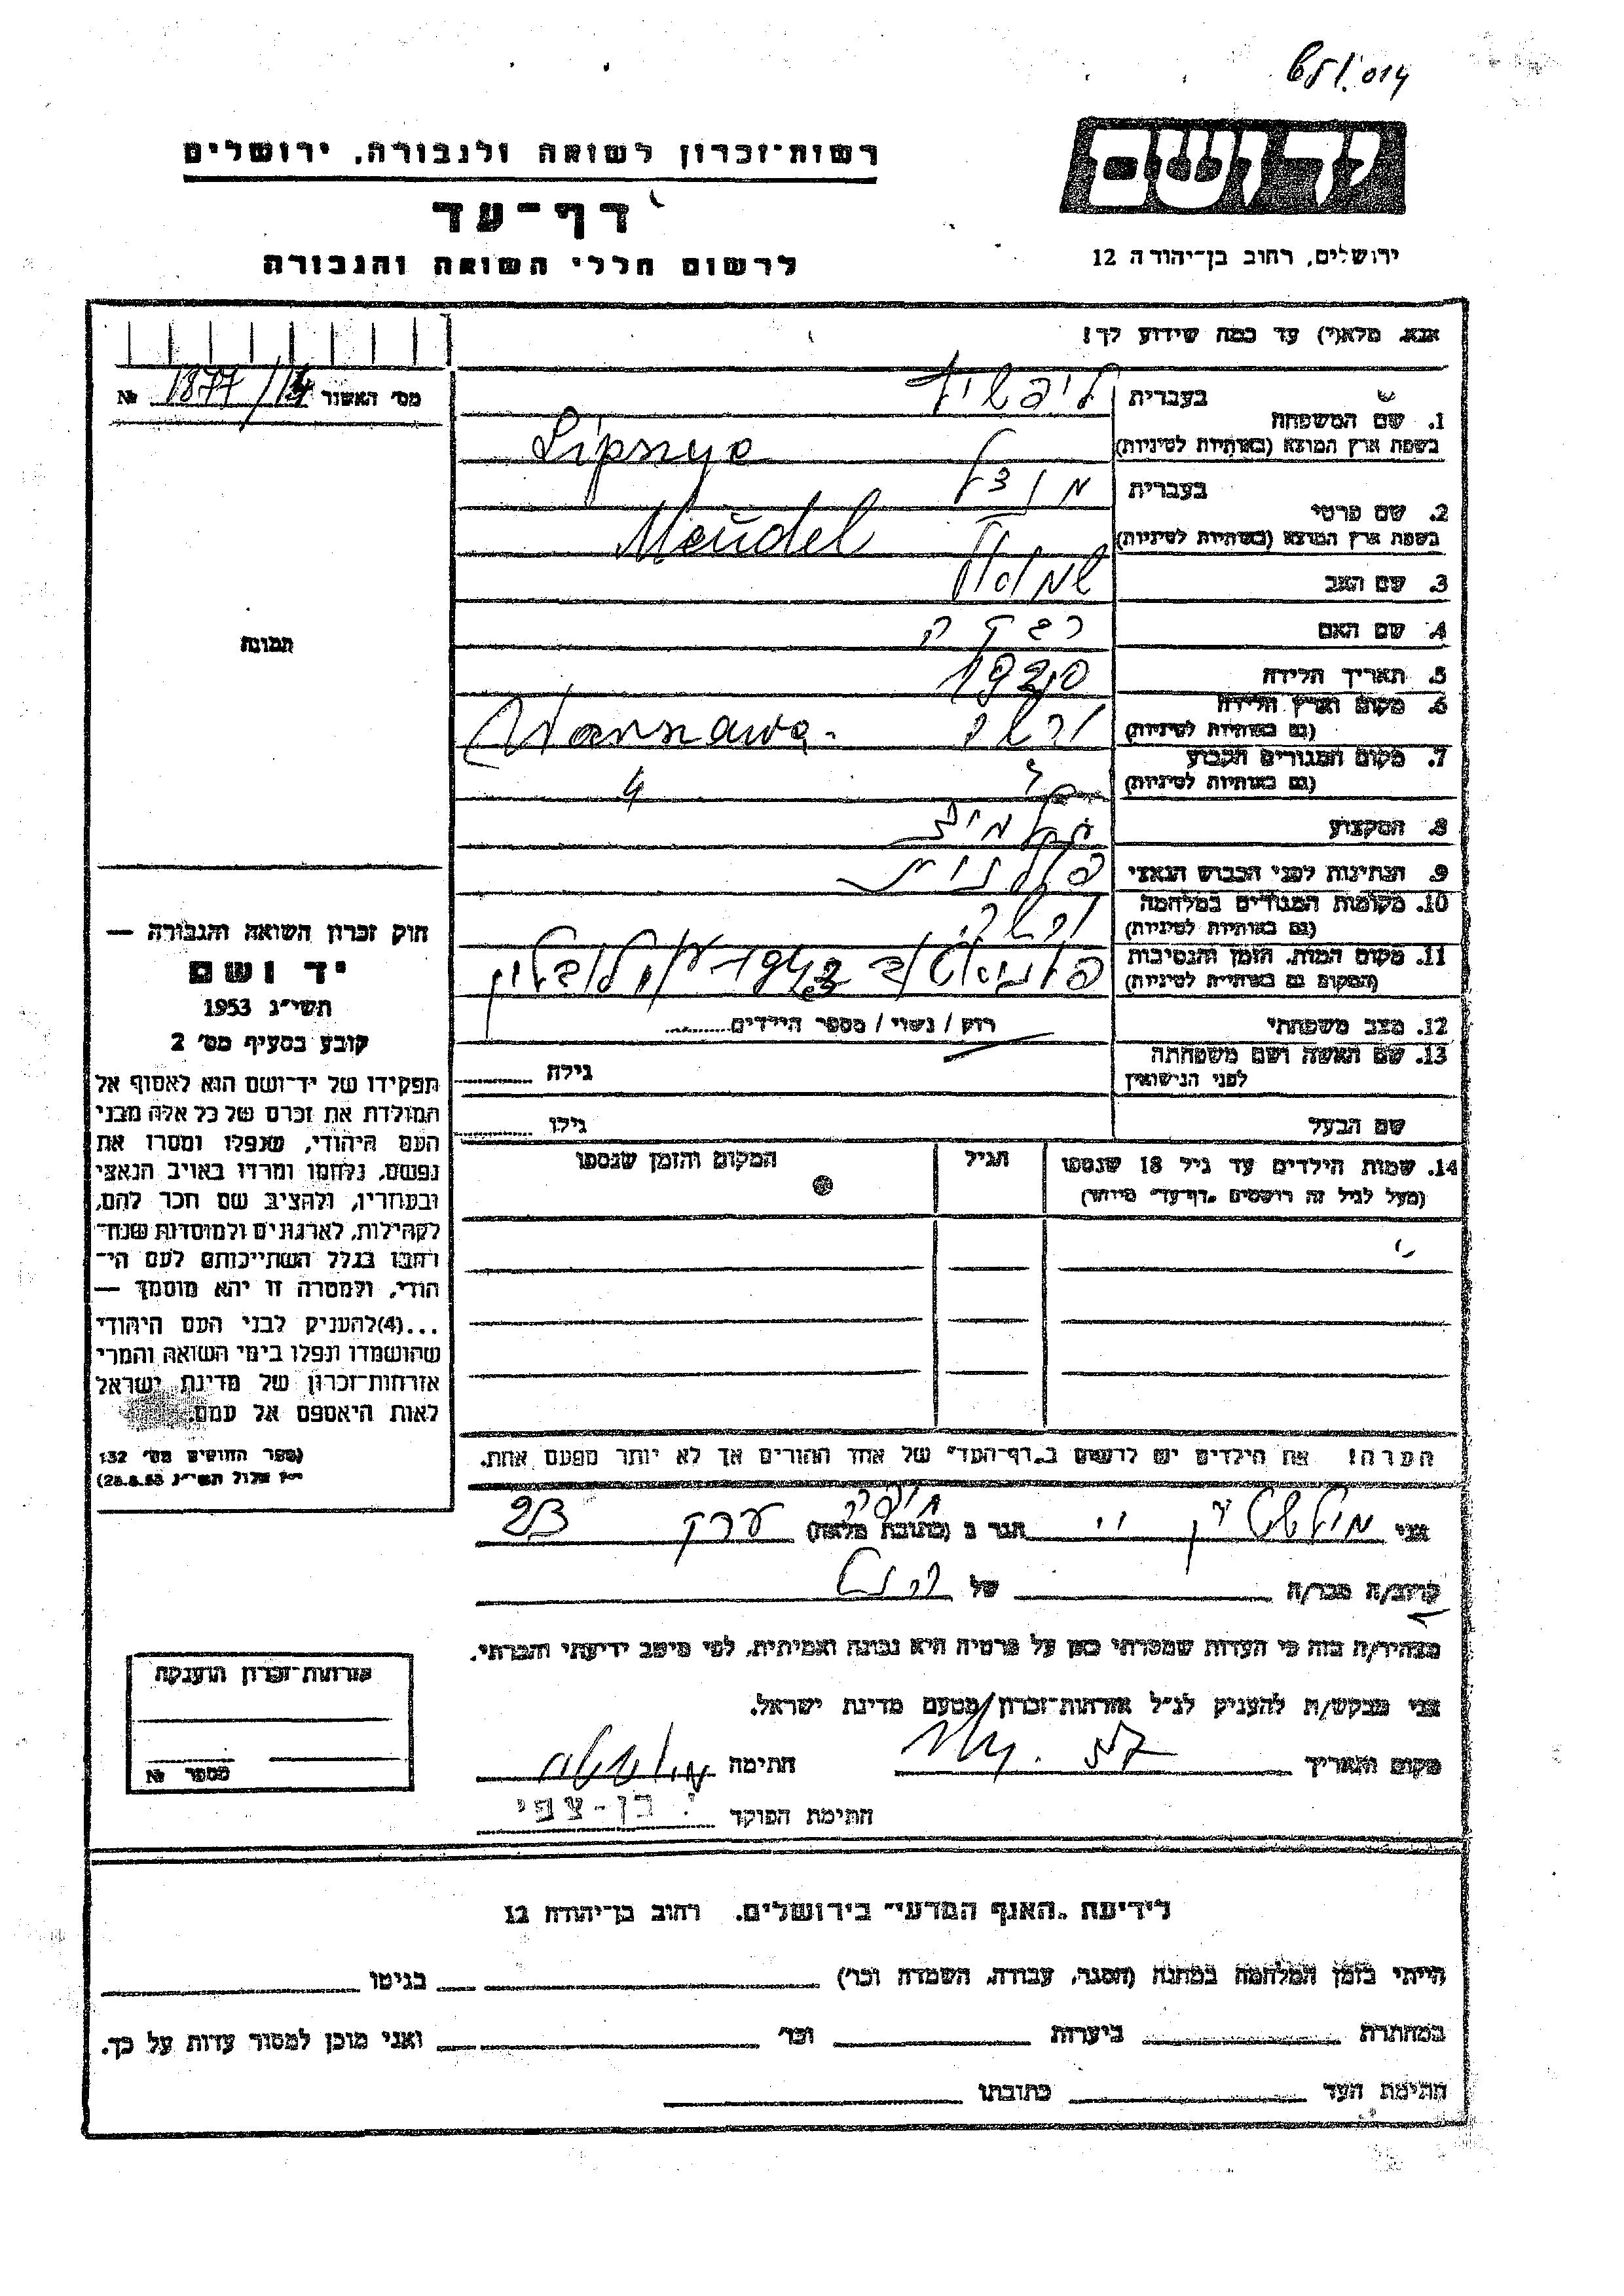 רשות־זכרון לשואה ולגבורה, ירושלים
ידושם
דף־עד
לרשום חללי השואה והגבורה
ירושלים, רחוב בן־יהודה 12
אנא, מלא(י) עד כמה שידוע לך!
מס׳ האשור 1877/14 №
בעברית
1. שם המשפחה
בשפת ארץ המוצא (באותיות לטיניות)
בעברית מנדל
2. שם פרטי
בשפת ארץ המוצא (באותיות לטיניות) Mendel
3. שם האב
4. שם האם רבקה
5. תאריך הלידה 1920
6. מקום וארץ הלידה ורשה Warszawa
(גם באותיות לטיניות)
7. מקום המגורים הקבוע
(גם באותיות לטיניות) 4
8. המקצוע
9. הנתינות לפני הכבוש הנאצי פולנית
10. מקומות המגורים במלחמה ורשה
(גם באותיות לטיניות)
11. מקום המות, הזמן והנסיבות
(המקום גם באותיות לטיניות)
12. מצב משפחתי רוק / נשוי / מספר הילדים
13. שם האשה ושם משפחתה גילה
לפני הנישואין
שם הבעל גילו
14. שמות הילדים עד גיל 18 שנספו הגיל המקום והזמן שנספו
(מעל לגיל זה רושמים „דף־עד״ מיוחד)
הערה! את הילדים יש לרשום ב„דף־העד״ של אחד ההורים אך לא יותר מפעם אחת.
תמונה
חוק זכרון השואה והגבורה —
יד ושם
תשי״ג 1953
קובע בסעיף מס׳ 2
תפקידו של יד־ושם הוא לאסוף אל
המולדת את זכרם של כל אלה מבני
העם היהודי, שנפלו ומסרו את
נפשם, נלחמו ומרדו באויב הנאצי
ובעוזריו, ולהציב שם וזכר להם,
לקהילות, לארגונים ולמוסדות שנח־
רבו בגלל השתייכותם לעם הי־
הודי, ולמטרה זו יהא מוסמך —
...(4)להעניק לבני העם היהודי
שהושמדו ונפלו בימי השואה והמרי
אזרחות־זכרון של מדינת ישראל
לאות היאספם אל עמם.
(ספר החוקים מס׳ 132
י״ז אלול תשי״ג 28.8.53)
אני הגר ב (כתובת מלאה) חיפה 23
קרוב/ה מכר/ה של
מצהיר/ה בזה כי העדות שמסרתי כאן על פרטיה היא נכונה ואמיתית, לפי מיטב ידיעתי והכרתי.
אני מבקש/ת להעניק לנ״ל אזרחות־זכרון מטעם מדינת ישראל.
מקום ותאריך חתימה
חתימת הפוקד י. בן-צפי
אזרחות־זכרון הוענקה
מספר №
לידיעת „האגף המדעי״ בירושלים, רחוב בן־יהודה 12
הייתי בזמן המלחמה במחנה (הסגר, עבודה, השמדה וכו׳) בגיטו
במחתרת ביערות וכו׳ ואני מוכן למסור עדות על כך.
חתימת העד כתובתו